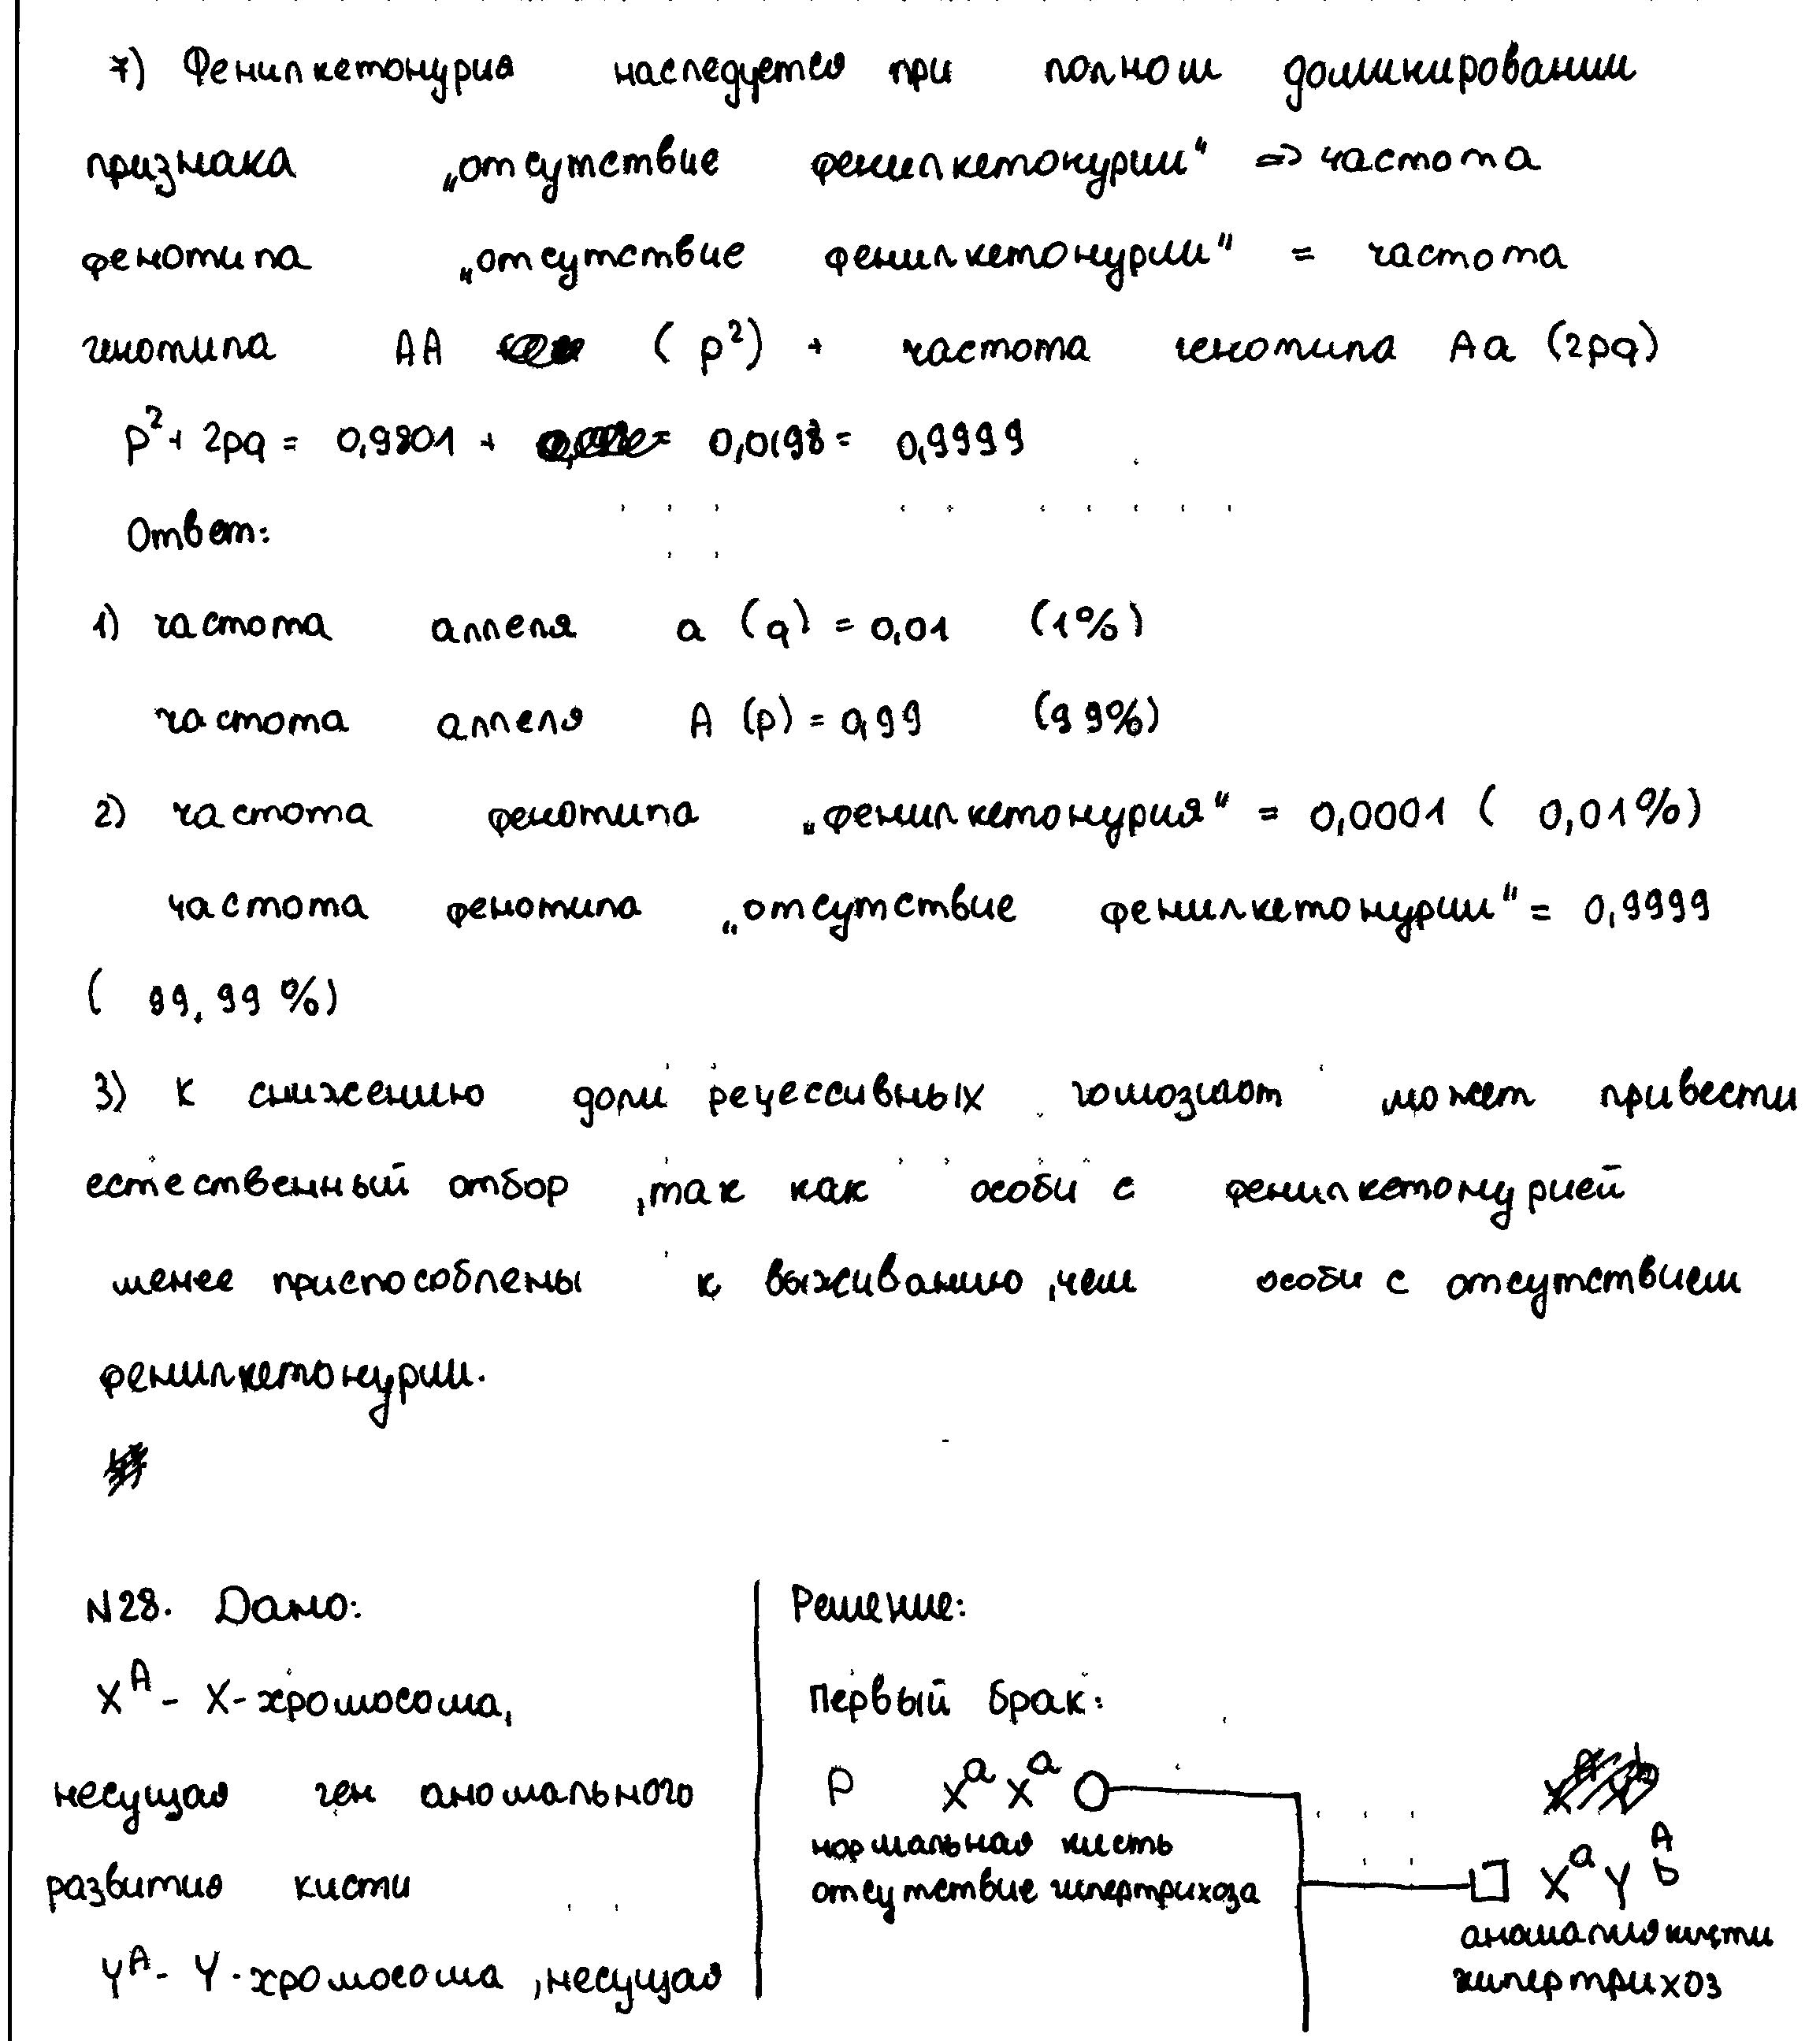 7) Фенилкетонурия наследуется при полном доминировании
признака „отсутствие фенилкетонурии“ => частота
фенотипа „отсутствие фенилкетонурии“ = частота
генотипа AA (p²) + частота генотипа Aa (2pq)
p² + 2pq = 0,9801 + 0,0198 = 0,9999
Ответ:
1) частота аллеля a (q) = 0,01 (1%)
частота аллеля A (p) = 0,99 (99%)
2) частота фенотипа „фенилкетонурия“ = 0,0001 ( 0,01%)
частота фенотипа „отсутствие фенилкетонурии“ = 0,9999
( 99,99 %)
3) К снижению доли рецессивных гомозигот может привести
естественный отбор, так как особи с фенилкетонурией
менее приспособлены к выживанию, чем особи с отсутствием
фенилкетонурии.
N28. Дано:
Xᴬ - X-хромосома,
несущая ген аномального
развития кисти
Yᴬ - Y-хромосома, несущая
Решение:
Первый брак:
P XᵃXᵃ
нормальная кисть
отсутствие гипертрихоза
XᵃYᴬb
аномалия кисти
гипертрихоз